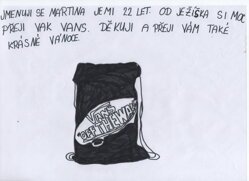 JMENUJI SE MARTINA JE MI 22 LET. OD JEŽÍŠKA SI MOC
PŘEJI VAK VANS. DĚKUJI A PŘEJI VÁM TAKÉ
KRÁSNÉ VÁNOCE.
VANS
"OFF THE WALL"